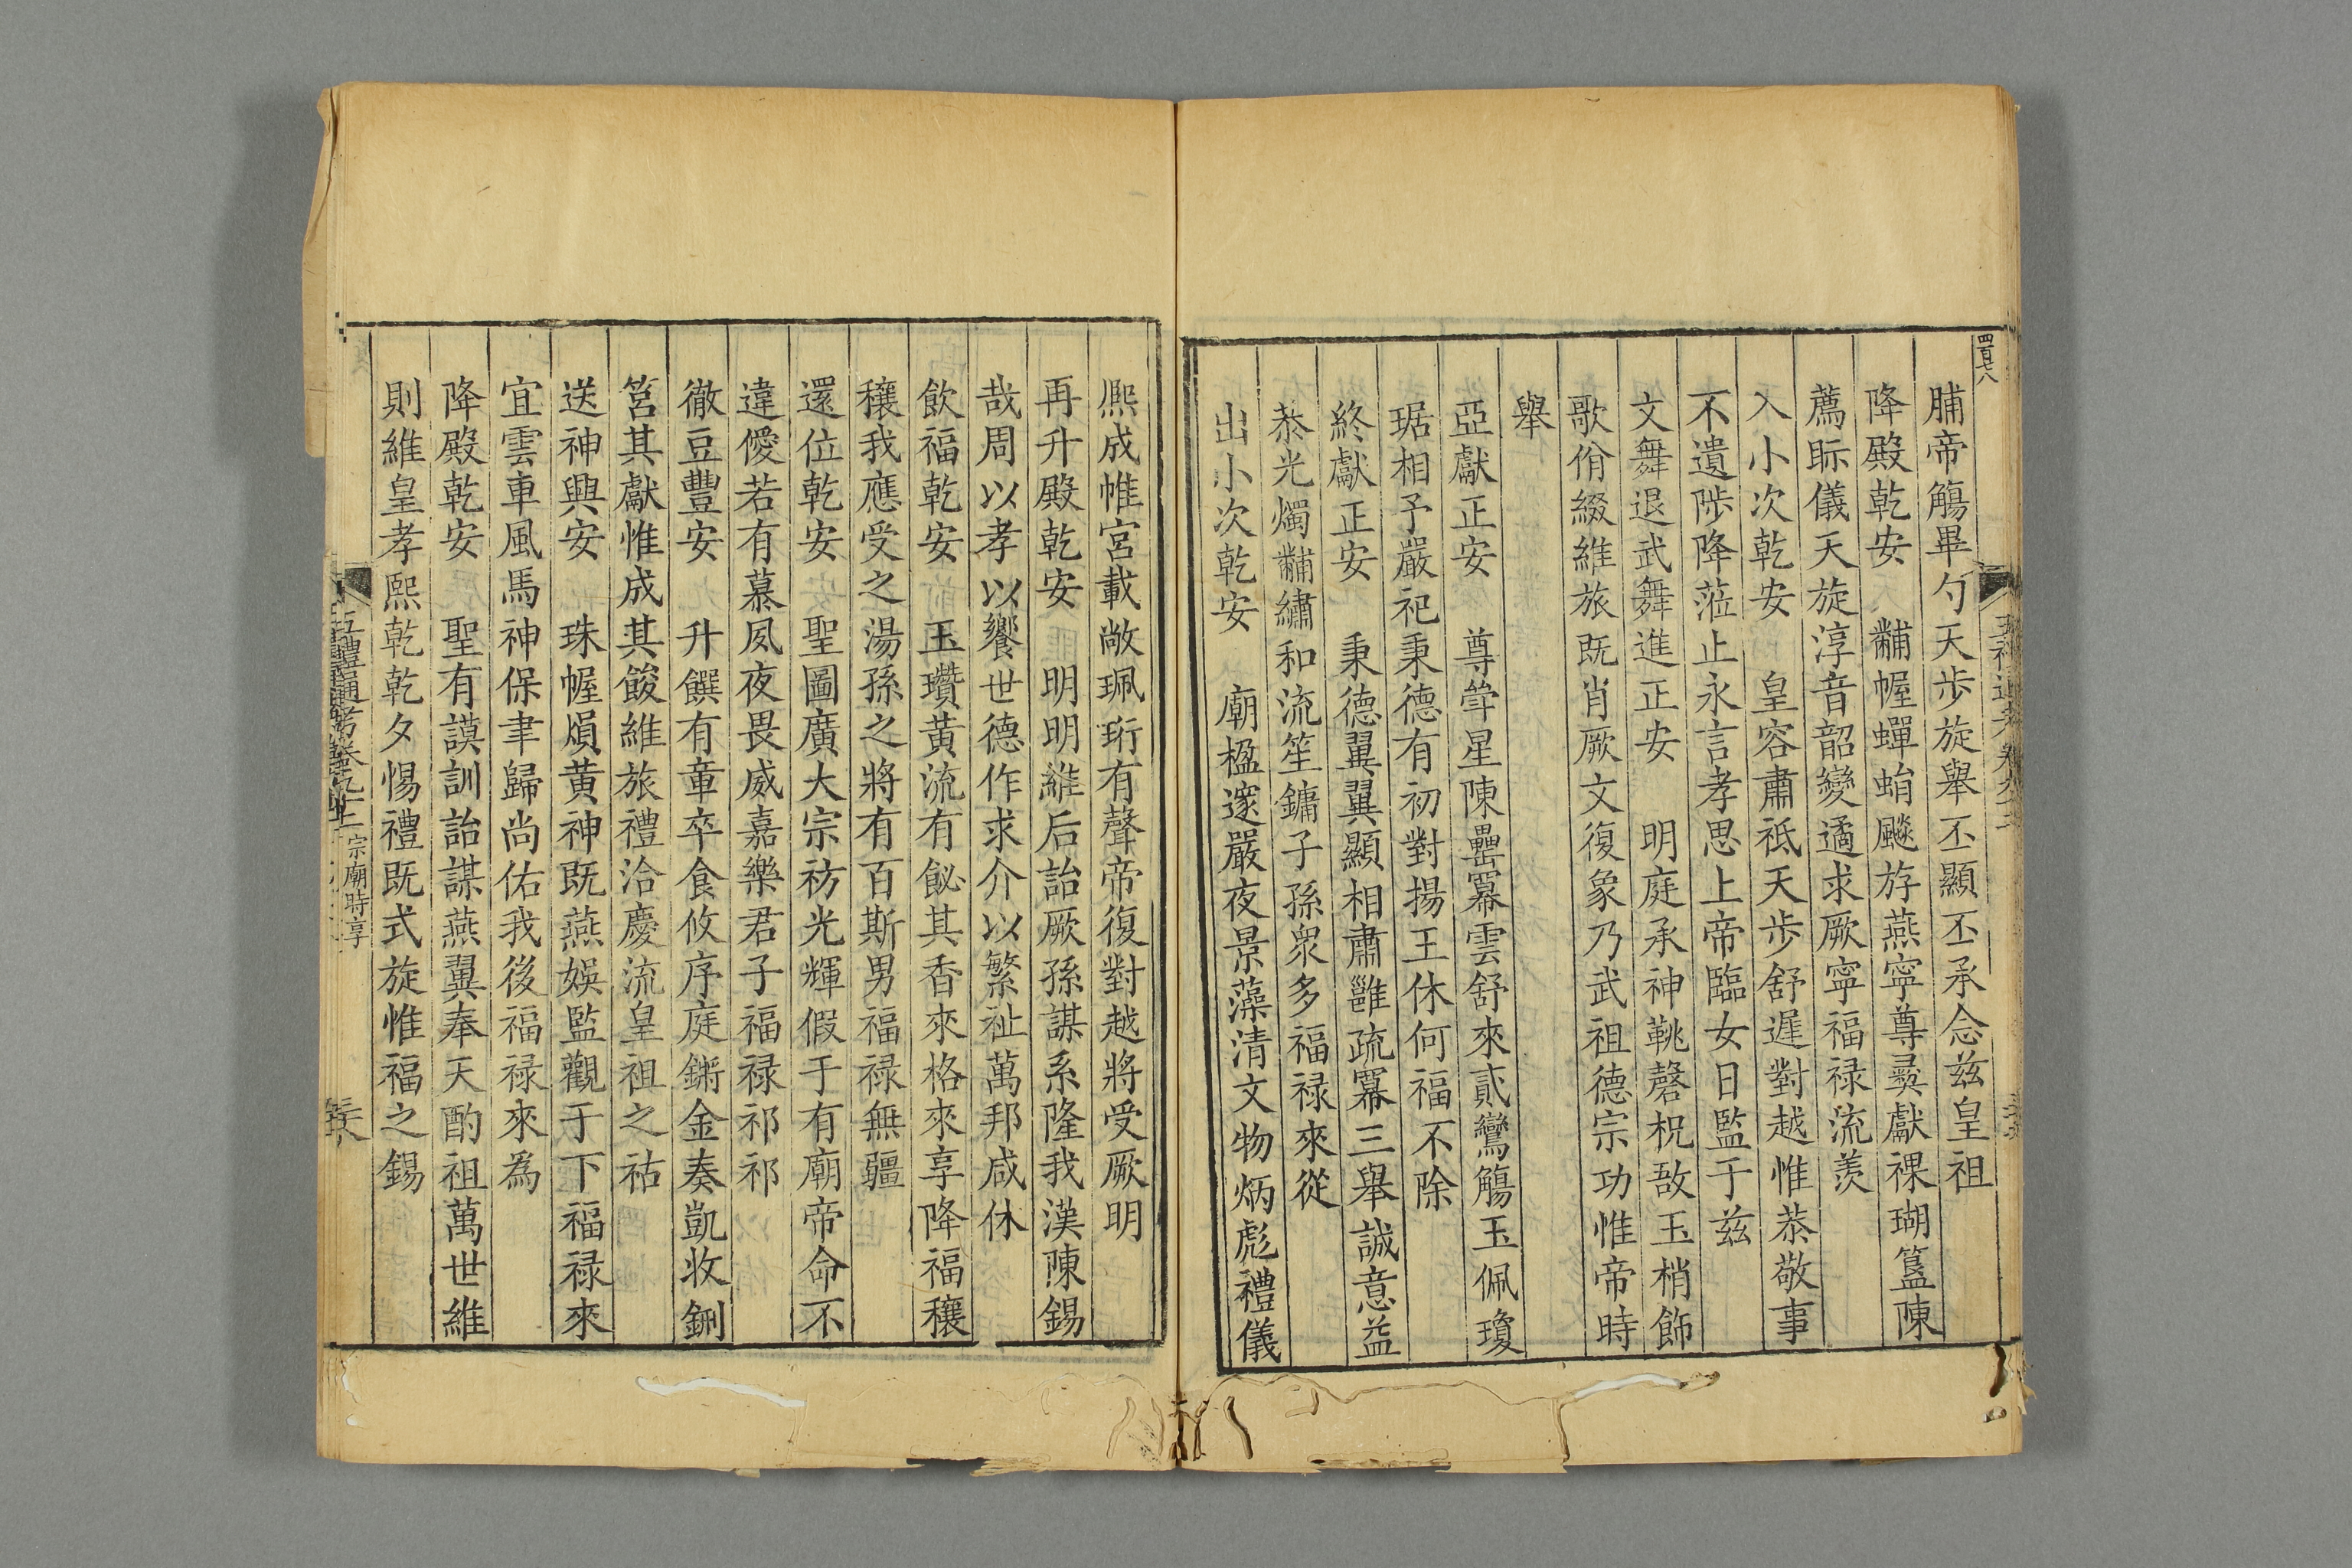 四百六八
脯帝觴畢勺天步旋舉丕顯丕承念兹皇祖
降殿乾安　黼幄蟬蛸飈斿燕寧尊彛獻祼瑚簋陳
薦眎儀天旋淳音韶變遹求厥寧福禄流羨
入小次乾安　皇容肅祗天步舒遲對越惟恭敬事
不遺陟降蒞止永言孝思上帝臨女日監于兹
文舞退武舞進正安　明庭承神鞉磬柷敔玉梢飾
歌佾綴維旅既肖厥文復象乃武祖德宗功惟帝時
舉
亞獻正安　尊斝星陳罍冪雲舒來貳鸞觴玉佩瓊
琚相予嚴祀秉德有初對揚王休何福不除
終獻正安　秉德翼翼顯相肅雝疏冪三舉誠意益
恭光燭黼繡和流笙鏞子孫衆多福禄來從
出小次乾安　廟楹邃嚴夜景藻清文物炳彪禮儀
熙成帷宮載敞珮珩有聲帝復對越將受厥明
再升殿乾安　明明維后詒厥孫謀系隆我漢陳錫
哉周以孝以饗世德作求介以繁祉萬邦咸休
飲福乾安　玉瓚黄流有飶其香來格來享降福穰
穰我應受之湯孫之將有百斯男福禄無疆
還位乾安　聖圖廣大宗祊光輝假于有廟帝命不
違僾若有慕夙夜畏威嘉樂君子福禄祁祁
徹豆豐安　升饌有章卒食攸序庭鏘金奏凱收鉶
筥其獻惟成其餕維旅禮洽慶流皇祖之祜
送神興安　珠幄熉黄神既燕娛監觀于下福禄來
宜雲車風馬神保聿歸尚佑我後福禄來為
降殿乾安　聖有謨訓詒謀燕翼奉天酌祖萬世維
則維皇孝熙乾乾夕惕禮既式旋惟福之錫
五禮通考卷九十二　宗廟時享